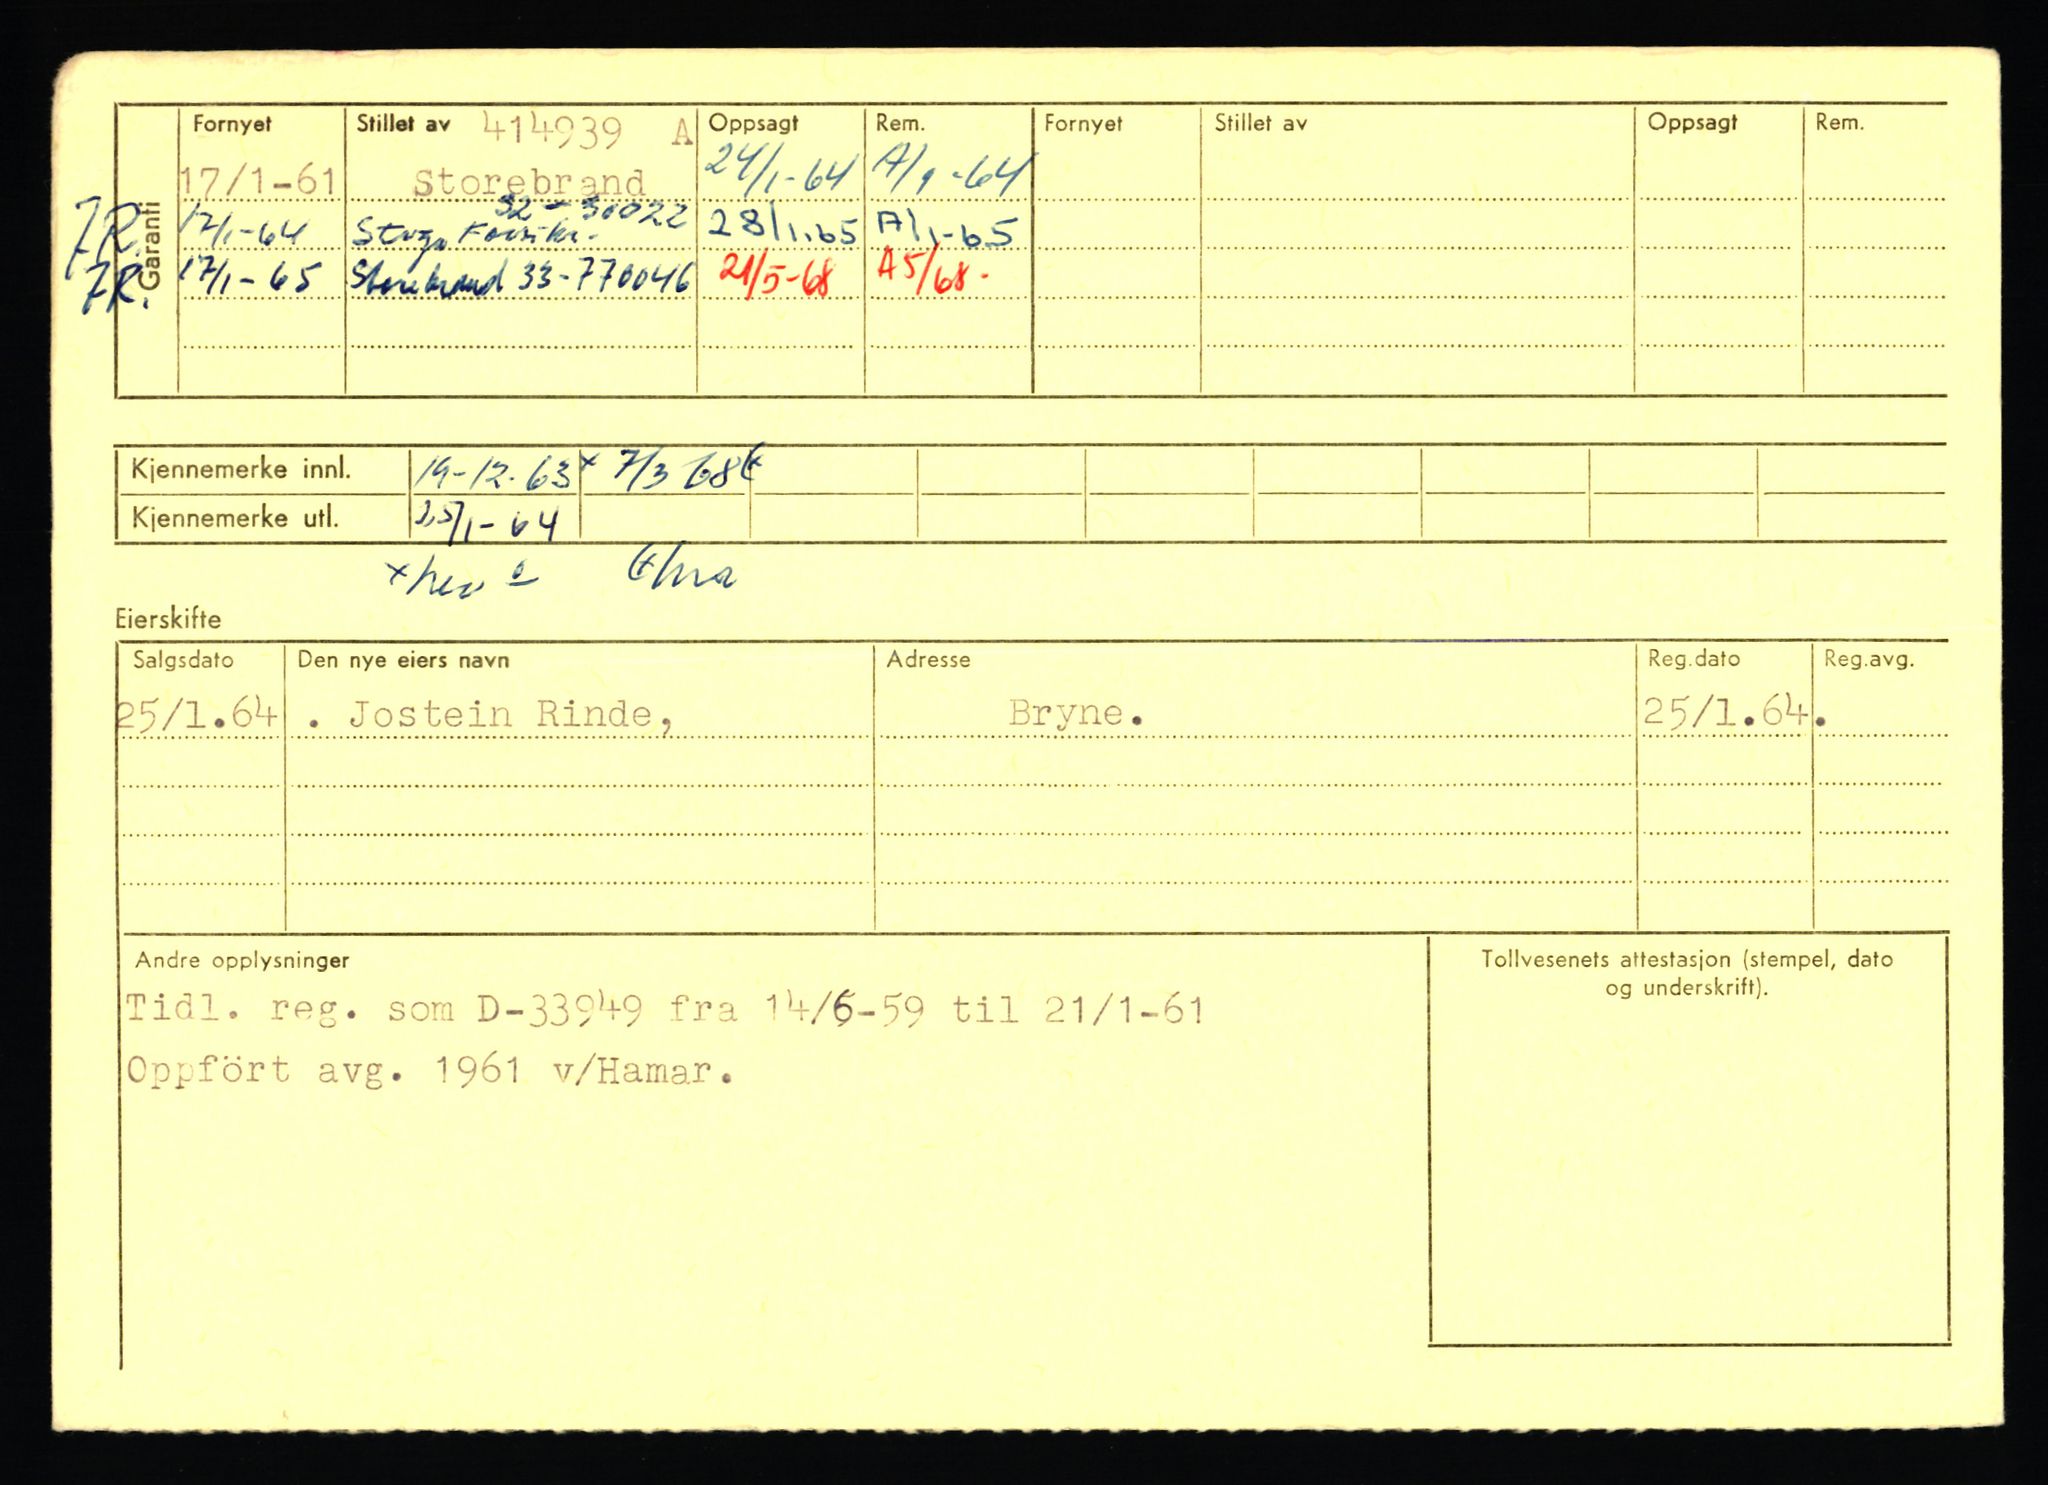 Garanti
Fornyet Stillet av 414939 A Oppsagt Rem. Fornyet Stillet av Oppsagt Rem.
17/1-61 Storebrand 24/1-64 A/1-64
32-30022
J.R. 17/1-64 28/1.65 A/1-65
J.R. 17/1-65 Storebrand 33-770046 21/5-68 A5/68-
Kjennemerke innl. 19-12-63 x 7/3 68
Kjennemerke utl. 25/1-64
Eierskifte
Salgsdato Den nye eiers navn Adresse Reg.dato Reg.avg.
25/1.64 . Jostein Rinde, Bryne. 25/1.64.
Andre opplysninger
Tidl. reg. som D-33949 fra 14/6-59 til 21/1-61
Oppfört avg. 1961 v/Hamar.
Tollvesenets attestasjon (stempel, dato
og underskrift).